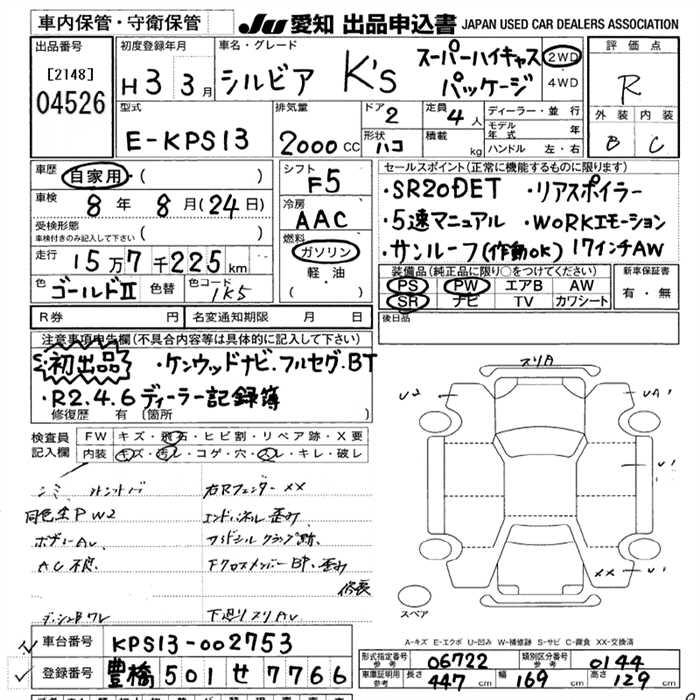 車内保管・守衛保管
JU 愛知 出品申込書 JAPAN USED CAR DEALERS ASSOCIATION
出品番号
[2148]
04526
初度登録年月
H 3 3月
車名・グレード
シルビア K's
スーパーハイキャス
パッケージ
2WD
4WD
評価点
R
外装 内装
B C
型式
E-KPS13
排気量
2000 CC
ドア 2
形状 ハコ
定員 4 人
積載 kg
ディーラー・並行
モデル年式 年
ハンドル 左・右
車歴
自家用・( )
車検 8 年 8 月 (24日)
受検形態
車検付きのみ記入して下さい ( )
走行 15万7千225km
色 ゴールドⅡ 色替 色コード 1K5
シフト
F5
冷房
AAC
燃料
ガソリン
軽油
セールスポイント(正常に機能するものに限ります)
・SR20DET ・リアスポイラー
・5速マニュアル ・WORKエモーション
・サンルーフ(作動OK) 17インチAW
装備品(純正品に限り○をつけてください)
PS PW エアB AW
SR ナビ TV カワシート
新車保証書
有・無
R券 円 名変通知期限 月 日
後日品
注意事項申告欄(不具合内容等は具体的に記入して下さい)
初出品 ・ケンウッドナビ.フルセグ.BT
・R2.4.6ディーラー記録簿
修復歴 有 〔箇所
検査員
記入欄
FW キズ・飛石・ヒビ割・リペア跡・X要
内装 キズ・汚レ・コゲ・穴・スレ・キレ・破レ
右Rフェンダー XX
同色全PW2 エンドパネル歪み
ボデーAU
AC不良
修長
下廻りスリAU
スリ有
U2
UA1
U1
XX
U1
スペア
A-キズ E-エクボ U-凹み W-補修跡 S-サビ C-腐食 XX-交換済
車台番号 KPS13-002753
登録番号 豊橋 501 せ 7766
形式指定番号 参考 06722 類別区分番号 参考 0144
車庫証明用 参考 長さ 447 cm 幅 169 cm 高さ 129 cm